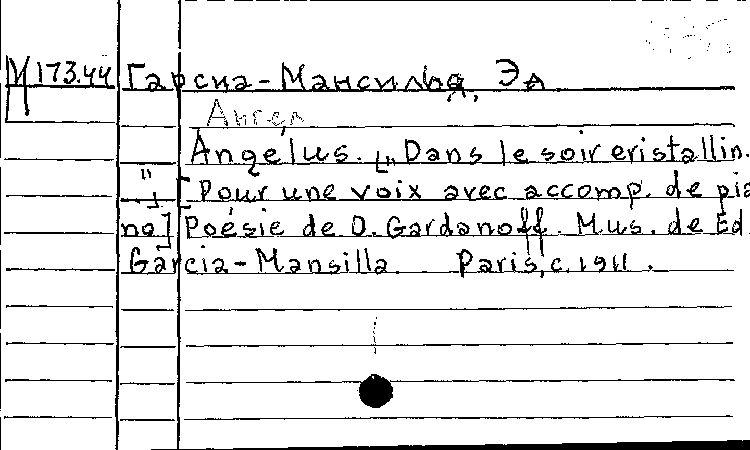 М 173.44 Гарсиа-Мансилья, Эд
Ангел
Angélus. [„Dans le soir cristallin.
"_] [Pour une voix avec accomp. de pia
no] Poésie de O. Gardanoff. Mus. de Ed.
Garcia-Mansilla Paris, c. 1911.